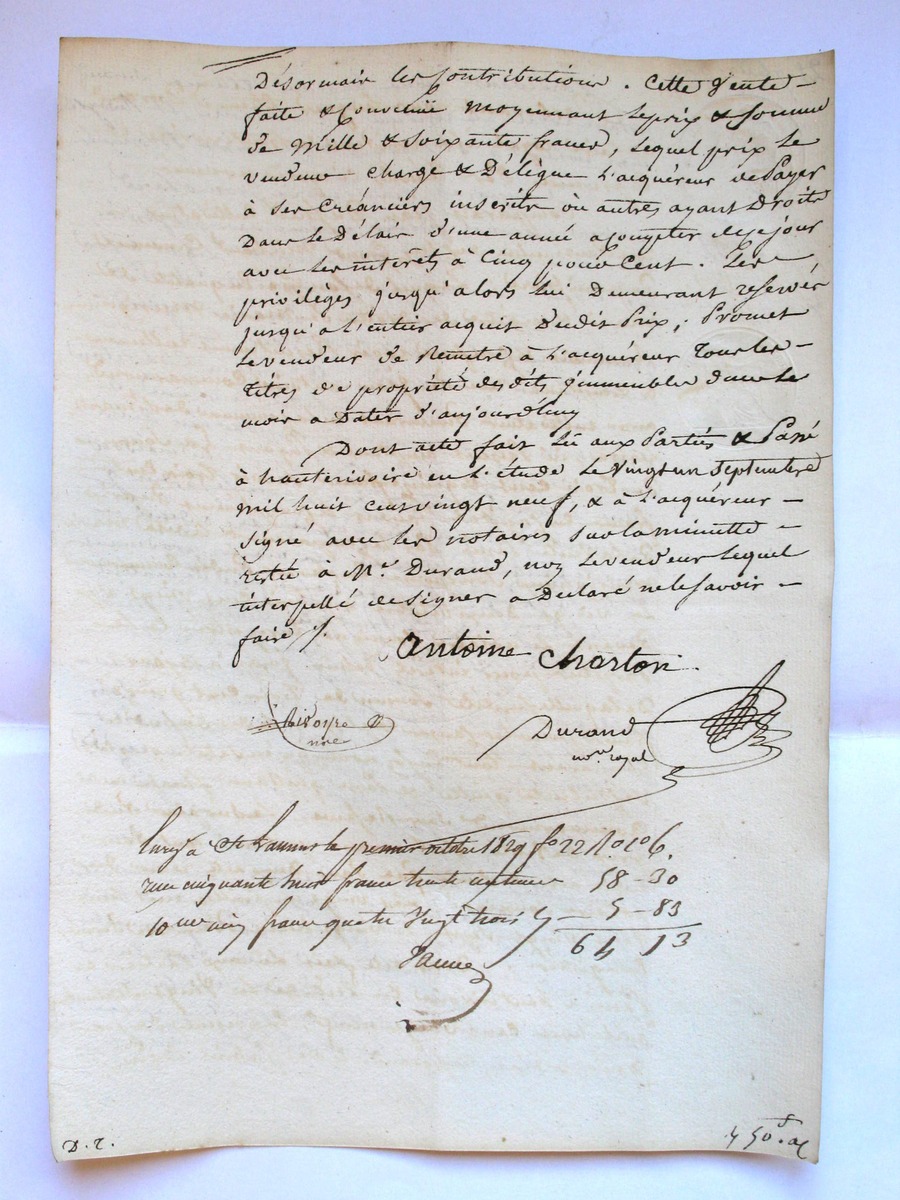 Désormais les Contributions. Cette Vente
faite & Convenue moyennant le prix & Somme
de Mille & Soixante francs, lequel prix le
vendeur charge & Délègue l'acquéreur de Payer
à ses Créanciers inscrits ou autres ayant Droits
Dans le Délais d'une année a Compter de ce jour
avec les intérêts à Cinq pour Cent. Les
privilèges jusqu'alors lui Demeurant reservés
jusqu'a l'entier acquit Dudit Prix; Promet
le vendeur de Remetre à l'acquéreur Tous les
Titres de propriété des dits immeubles dans le
mois a Dater d'aujourd'huy
Dont acte fait Lû aux Parties & Passé
à hauterivoire en l'étude le Vingt un Septembre
mil huit cent vingt neuf, & à l'acquéreur
Signé avec les notaires sur la minutte
restée à Me. Durand, non le vendeur lequel
interpellé de signer a Déclaré ne le savoir
faire ./.
Antoine Charton
nre
Durand
nore. royal
le premier octobre 1829 fo 22
cinquante huit francs trente centimes 58-30
10me cinq francs quatre Vingt trois 5-83
64 13
D. T.